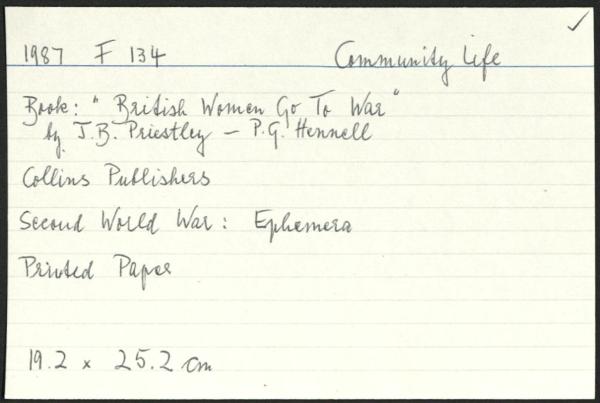 1987 F 134 Community Life
Book: "British Women Go To War"
by J.B. Priestley – P.G. Hennell
Collins Publishers
Second World War: Ephemera
Printed Paper
19.2 x 25.2 cm